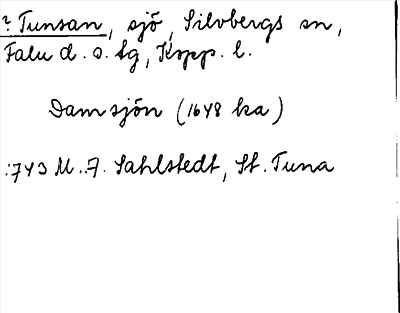 ? Tunsan, sjö, Silvbergs sn,
Falu d. s. lg, Kopp. l.
Damsjön (1648 ka)
:743 M. F. Sahlstedt, St. Tuna